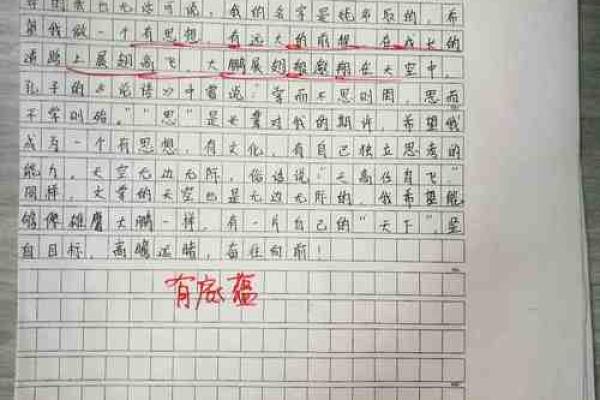 的我也无话可说，我的名字是姥爷取的，希
望我做一个有思想，有远大的前想，在成长的
道路上展翅高飞，大鹏展翅翱翔在天空中，
孔子的《论语》中曾说：学而不思则罔，思而
不学则殆。""思"是长辈对我的期许，希望我
成为一个有思想，有文化，有自己独立思考的
能力。天空无边无际，俗话说："天高任鸟飞"
同样，文学的天空也是无边无际的，我希望能
够像雄鹰大鹏一样，有一片自己的"天下"，坚
自目标，高瞻远瞩，奋往向前！
有底蕴